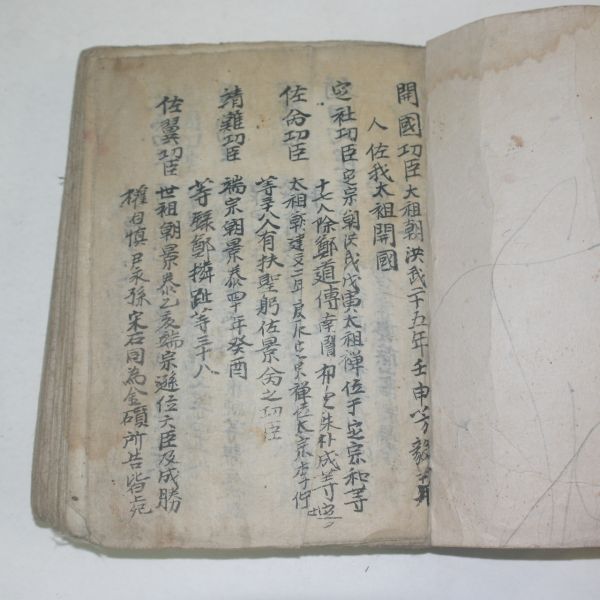 開國功臣 太祖朝洪武二十五年壬申芳毅等
人佐我太祖開國
定社功臣 定宗朝洪武戊寅太祖禪位于定宗和等
十七人除鄭道傳南誾 朱朴成等
佐命功臣 太祖朝建文二年庚辰定宗禪位太宗李佇
等三十八人有扶聖躬佐景命之功臣
靖難功臣 端宗朝景泰四年癸酉
等蘇鄭擠趾等三十八
佐翼功臣 世祖朝景泰乙亥端宗遜位大臣及成勝
權自愼尹永孫宋石同為金礩所告皆死